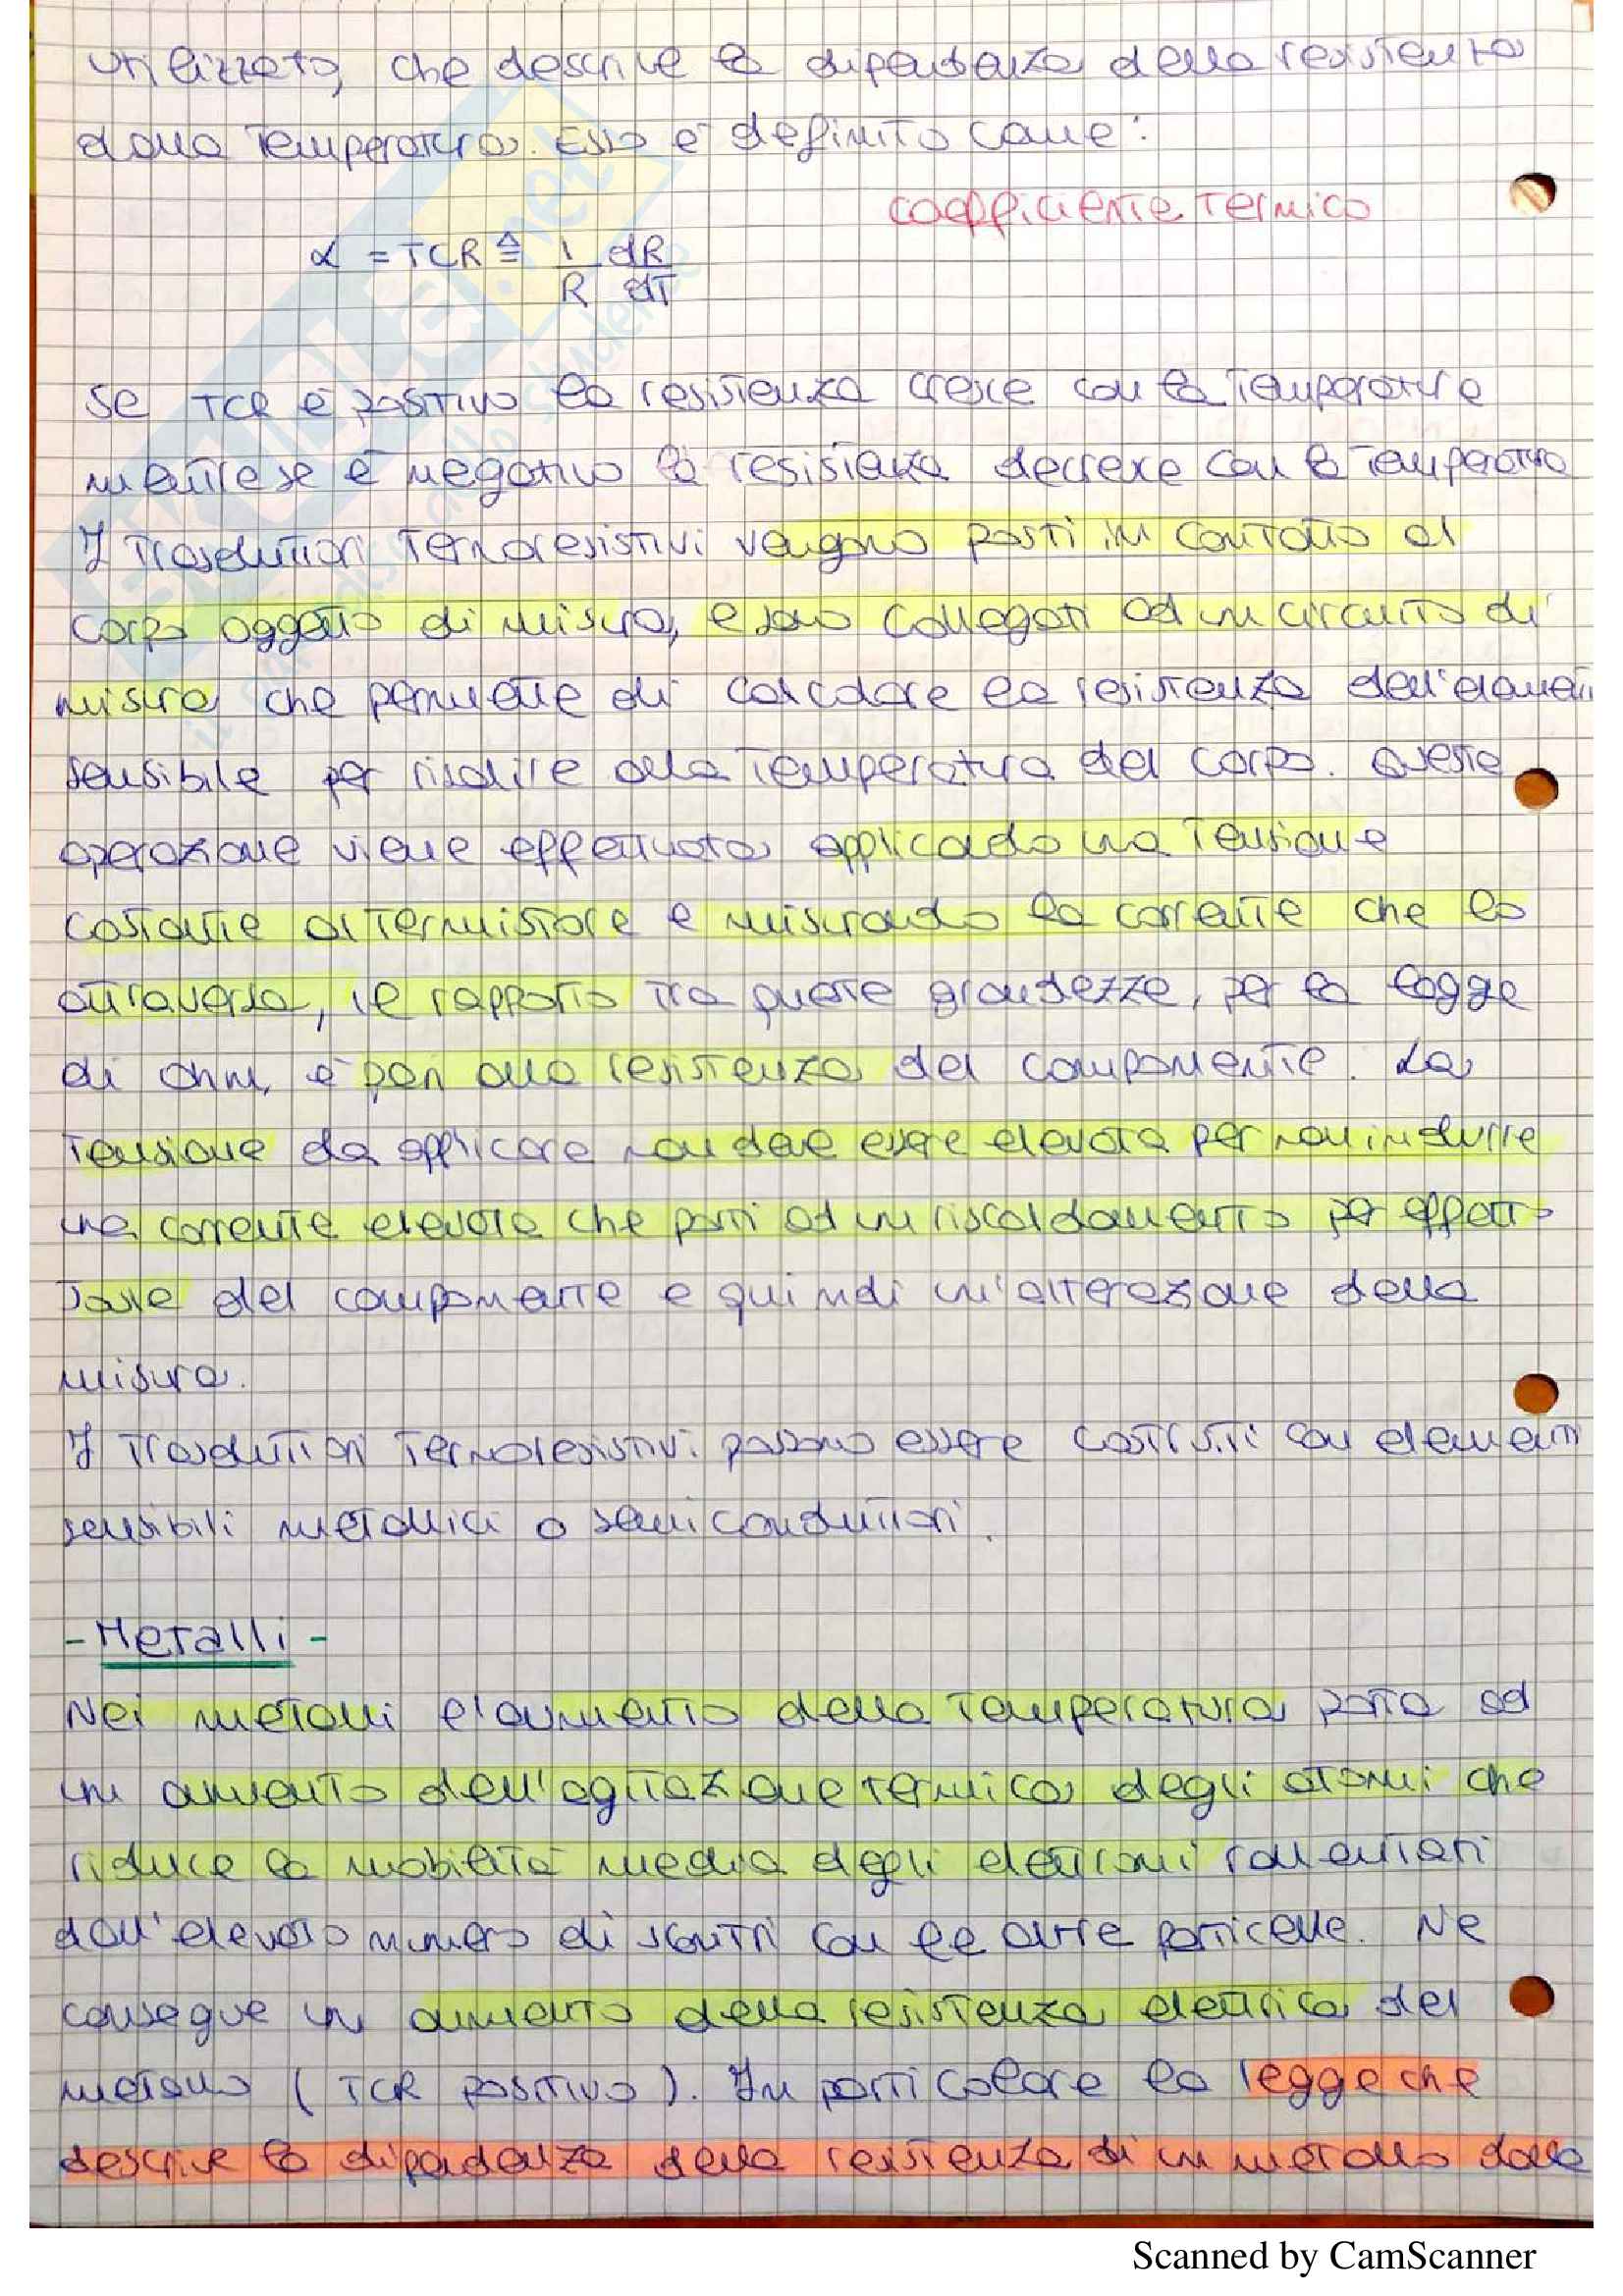 utilizzato, che descrive la dipendenza della resistenza
dalla temperatura. Esso è definito come:
coefficiente termico
α = TCR ≜ 1/R dR/dT
Se TCR è positivo la resistenza cresce con la temperatura
mentre se è negativo la resistenza decresce con la temperatura
I trasduttori termoresistivi vengono posti in contatto al
corpo oggetto di misura, e sono collegati ad un circuito di
misura che permette di calcolare la resistenza dell'elemen
sensibile per risalire alla temperatura del corpo. Questa
operazione viene effettuata applicando una tensione
costante al termistore e misurando la corrente che lo
attraversa, il rapporto tra queste grandezze, per la legge
di Ohm, è pari alla resistenza del componente. La
tensione da applicare non deve essere elevata per non indurre
una corrente elevata che porti ad un riscaldamento per effetto
Joule del componente e quindi un'alterazione della
misura.
I trasduttori termoresistivi possono essere costruiti con elementi
sensibili metallici o semiconduttori.
- Metalli -
Nei metalli l'aumento della temperatura porta ad
un aumento dell'agitazione termica degli atomi che
riduce la mobilità media degli elettroni rallentati
dall'elevato numero di scontri con le altre particelle. Ne
consegue un aumento della resistenza elettrica del
metallo (TCR positivo). In particolare la legge che
descrive la dipendenza della resistenza di un metallo dalla
Scanned by CamScanner